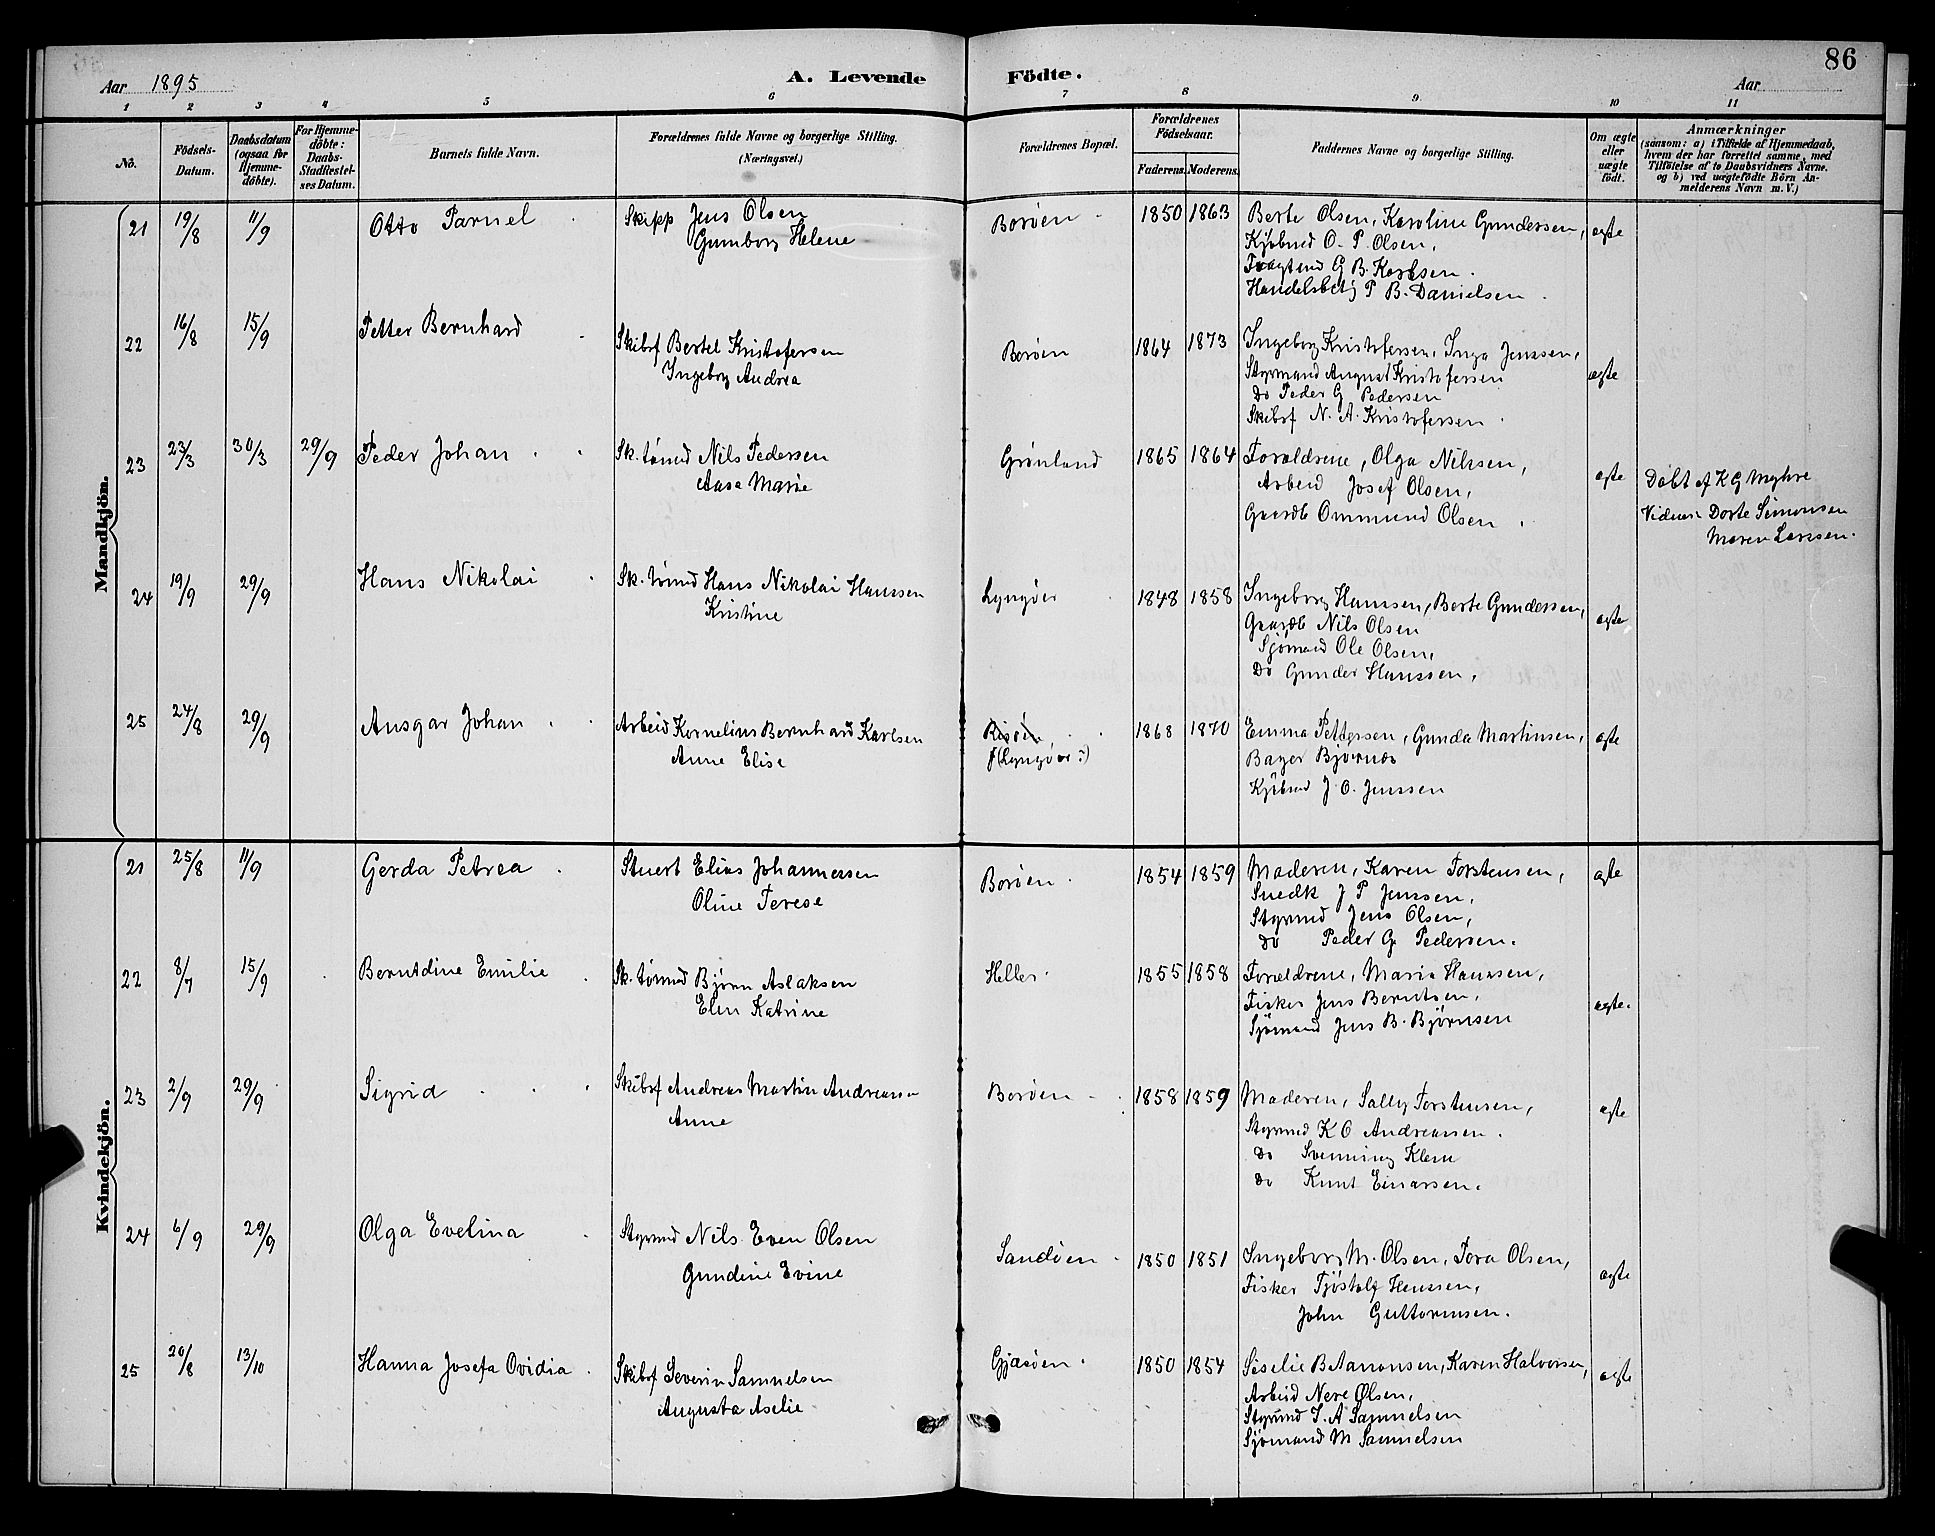 86
Aar 1895
A. Levende Födte.
Aar
1 2 3 4 5 6 7 8 9 10 11
No.
Födsels-Datum.
Daabsdatum (ogsaa for Hjemmedöbte).
For Hjemmedöbte: Daabs-Stadfestelses Datum.
Barnets fulde Navn.
Forældrenes fulde Navne og borgerlige Stilling. (Næringsvei.)
Forældrenes Bopæl.
Forældrenes Födselsaar.
Faderens. Moderens.
Faddernes Navne og borgerlige Stilling.
Om ægte eller uægte födt.
Anmærkninger
(saasom: a) i Tilfælde af Hjemmedaab, hvem der har forrettet samme, med Tilföielse af to Daabsvidners Navne. og b) ved uægtefödte Börn Anmelderens Navn m. V.)
Mandkjön.
21 19/8 11/9 Otto Parnel Skipp Jens Olsen Borøen 1850 1863 Berte Olsen, Karoline Gundersen, ægte
Gunborg Helene Kjøbmd O. P. Olsen,
Fragtmd G B. Karlsen.
Handelsbetj P B. Danielsen.
22 16/8 15/9 Petter Bernhard Skibsf Bertel Kristofersen Borøen 1864 1873 Ingeborg Kristofersen, Inga Jenssen, ægte
Ingeborg Andrea Styrmand August Kristofersen
Do Peder G Pedersen
Skibsf N. A. Kristofersen.
23 23/3 30/3 29/9 Peder Johan Sk. tømmd Nils Pedersen Grønland 1865 1864 Foreldrene, Olga Nilssen, ægte Døbt af K G Myhre
Aase Marie Arbeid Josef Olsen, Vidner: Dorte Simonsen
Gaardb Ommund Olsen Maren Larssen.
24 19/9 29/9 Hans Nikolai Sk. tømmd Hans Nikolai Hanssen Lyngøer 1848 1858 Ingeborg Hanssen, Berte Gundersen, ægte
Kristine Gaardb Nils Olsen
Sjømand Ole Olsen,
Do Gunder Hanssen,
25 24/8 29/9 Ansgar Johan Arbeid Kornelius Bernhard Karlsen Risøen 1868 1870 Emma Pettersen, Gunda Martinsen, ægte
Anne Elise (Lyngøer?) Bager Bjørnæs
Kjøbmd J. O. Jenssen
Kvindekjön.
21 25/8 11/9 Gerda Petrea Stuert Elias Johannessen Borøen 1854 1859 Moderen, Karen Torstensen, ægte
Oline Terese Snedk J P Jenssen,
Styrmd Jens Olsen,
Do Peder G. Pedersen.
22 8/7 15/9 Berntdine Emilie Sk. tømmd Bjørn Aslaksen Helle 1855 1858 Foreldrene, Marie Hanssen, ægte.
Elen Katrine Fisker Jens Berntsen,
Sjømand Jens B. Bjørnsen
23 2/9 29/9 Sigrid Skibsf Andreas Martin Andreassen Borøen 1858 1859 Moderen, Sally Torstensen, ægte
Anne Styrmd K O Andreassen.
Do Svenning Klem
Do Knut Einarsen.
24 6/9 29/9 Olga Evelina Styrmd Nils Even Olsen Sandøen 1850 1851 Ingeborg M. Olsen, Tora Olsen, ægte
Gundine Evine Fisker Tjøstolf Hanssen,
John Guttormsen.
25 20/8 13/10 Hanna Josefa Ovidia Skibsf Severin Samuelsen Gjæsøen 1850 1854 Siselie B Aanonsen, Karen Halvorsen, ægte
Augusta Aselie Arbeid Nere Olsen,
Styrmd S. A Samuelsen
Sjømand M Samuelsen